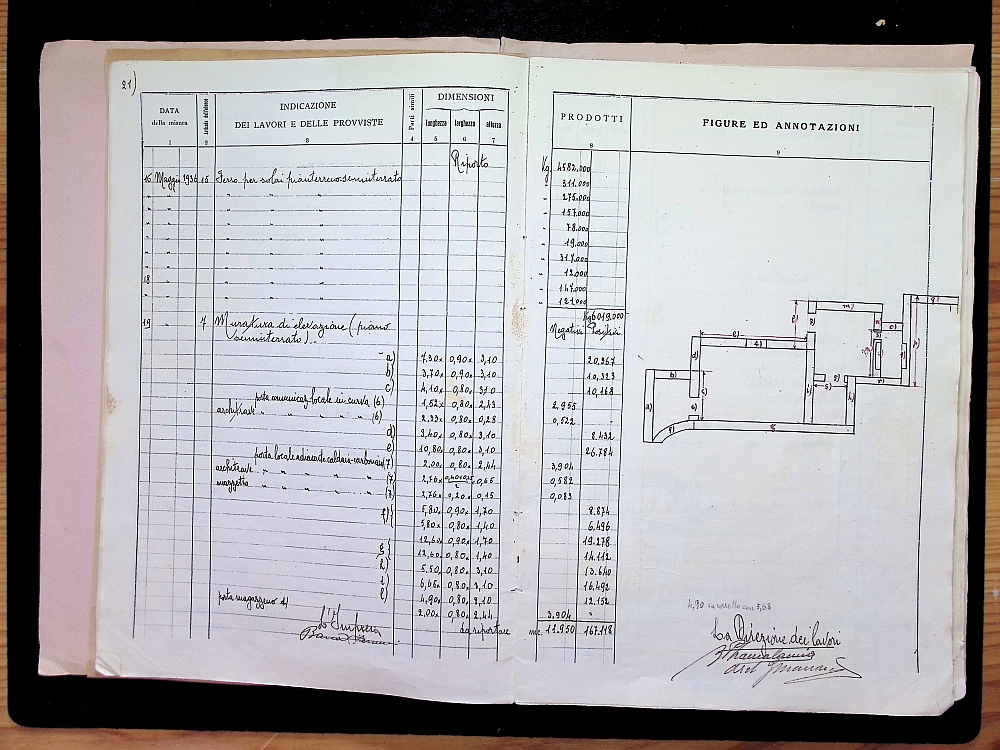 21)
DATA della misura
Articolo dell'elenco
INDICAZIONE
DEI LAVORI E DELLE PROVVISTE
Parti simili
DIMENSIONI
lunghezza larghezza altezza
PRODOTTI
FIGURE ED ANNOTAZIONI
1 2 3 4 5 6 7 8 9
Riporto Kg. 4582.000
16 Maggio 1936 15 Ferro per solai pianterreno-seminterrato " 311.000
" " " " " 275.000
" " " " " 157.000
" " " " " 78.000
" " " " " 19.000
" " " " " 317.000
" " " " " 12.000
18 " " " " " 147.000
" " " " " 121.000
Kg 6019.000
19 " 7 Muratura di elevazione (piano Negativi Positivi
seminterrato).
a) 7,30 x 0,90 x 3,10 20.367
b) 3,70 x 0,90 x 3,10 10,323
c) 4,10 x 0,80 x 3,10 10,168
porta comunicaz. locale in curva (6) 1,52 x 0,80 x 2,43 2,955
architrave " " " " (6) 2.33 x 0,80 x 0,28 0,522
d) 3,40 x 0,80 x 3,10 8.432
e) 10,80 x 0,80 x 3,10 26.784
porta locale adiacente caldaia-carbonaia (7) 2.00 x 0,80 x 2,44 3,904
architrave " " " " (7) 2,76 x 0,65 0,582
mazzetta " " " " (7) 2,76 x 0,20 x 0,15 0,083
f) { 5,80 x 0,90 x 1,70 8.874
5,80 x 0,80 x 1,40 6.496
g { 12,60 x 0,90 x 1,70 19.278
12,60 x 0,80 x 1,40 14.112
h) 5.50 x 0,80 x 3,10 13.640
i) 6,65 x 0,80 x 3,10 16.492
l) 4,90 x 0,80 x 3,10 12.152
porta magazzeno 2,00 x 0,80 x 2,44 3,904
da riportare mc. 11.950 167.118
L'Impresa
4,90 va corretto con 5,68
La Direzione dei lavori